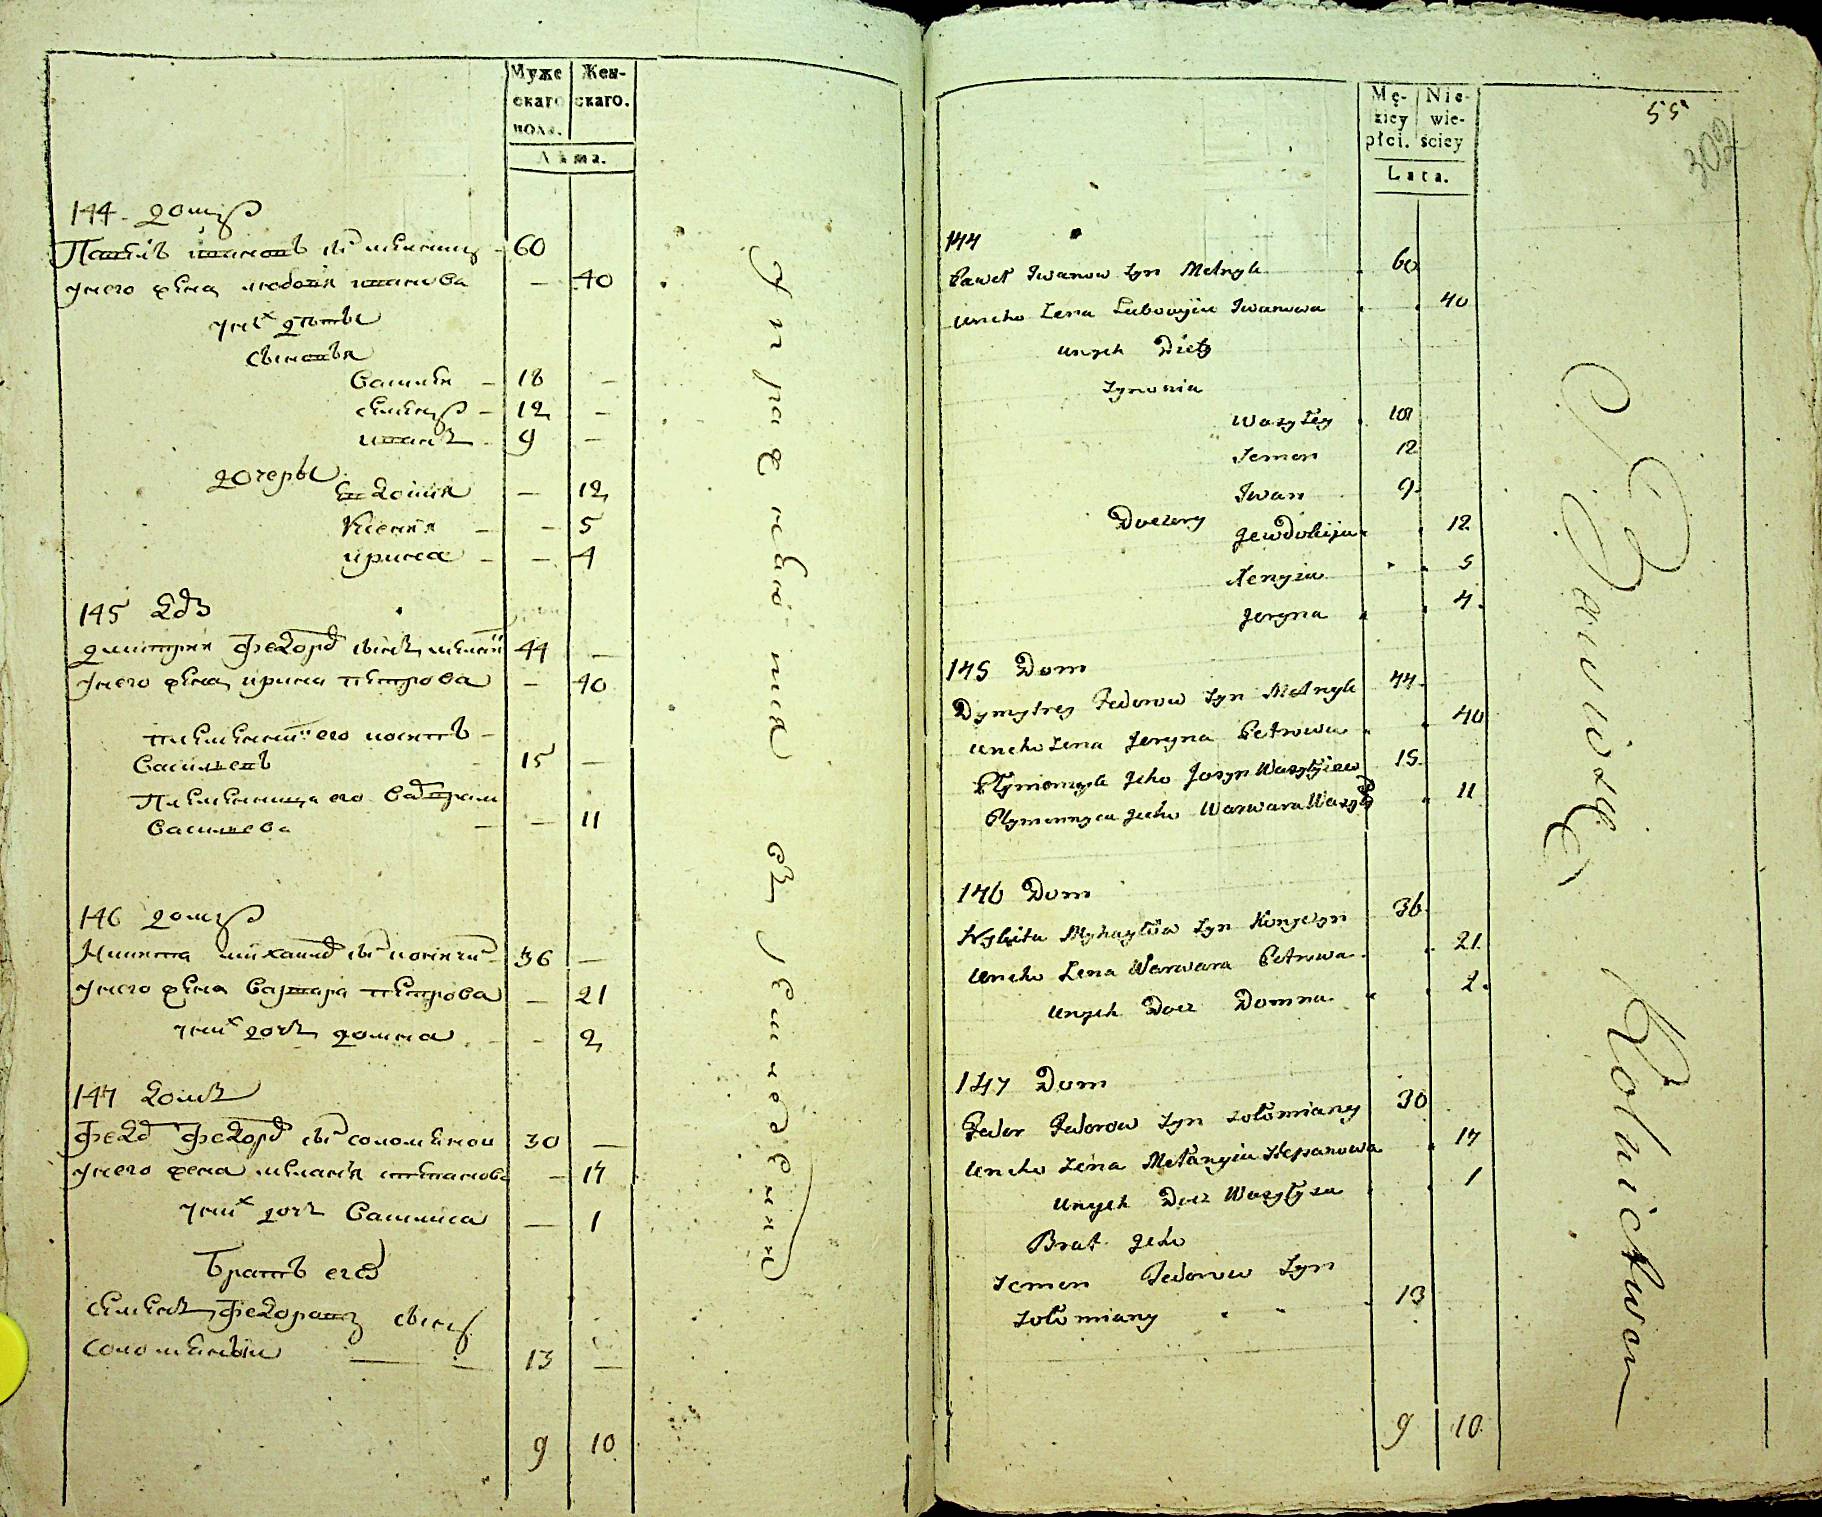 Муже Жен-
скаго скаго.
пола.
Лѣта.
144 домъ
Павелъ ивановъ сынъ мелникъ 60
унего жена любовія иванова — 40
унихъ дѣти
сыновья
Василей — 18 —
семенъ — 12 —
иванъ — 9 —
дочеры
Евдокия — 12
Ксения — — 5
ирина — — 4
145 домъ
дмитрий федоровъ сынъ мелникъ 44 —
унего жена ирина петрова — 40
племенникъ его осипъ —
Васильевъ 15 —
Племенница его варвара
Васильева — — 11
146 домъ
Никита михайловъ сынъ 36 —
унего жена варвара петрова — 21
унихъ дочь домна — 2
147 домъ
федоръ федоровъ сынъ соломяной 30 —
унего жена меланія степанова — 17
унихъ дочь Василиса — 1
Братъ его
семенъ федоровъ сынъ
соломяный 13 —
9 10
Mę- Nie-
zkiey wie-
płci. ściey
Lata.
55
302
144
Paweł Iwanow Syn Melnyk 60
uneho Żena Lubowyia Iwanowa 40
unych Diety
Synowia
Wasyley 18
Semen 12
Iwan 9
Doczery Jewdokija 12
Xenyia 5
Jeryna 4
145 Dom
Dymytrey Fedorow Syn Melnyk 44
uneho Żena Jeryna Petrowa 40
Płymennyk Jeho Josyp Wasyljiew 15
Płymennyca Jeho Warwara Wasyl 11
146 Dom
Nykita Myhayłow Syn 36
uneho Żena Warwara Petrowa 21
unych Docz Domna 2
147 Dom
Fedor Fedorow Syn Sołomiany 30
uneho Żena Mełanyia Stepanowa 17
unych Docz Wasyłysa 1
Brat Jeho
Semen Fedorow Syn
Sołomiany 13
9 10